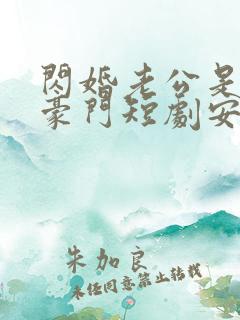 閃婚老公是
豪門短劇安
朱加良
未任同意禁止转载